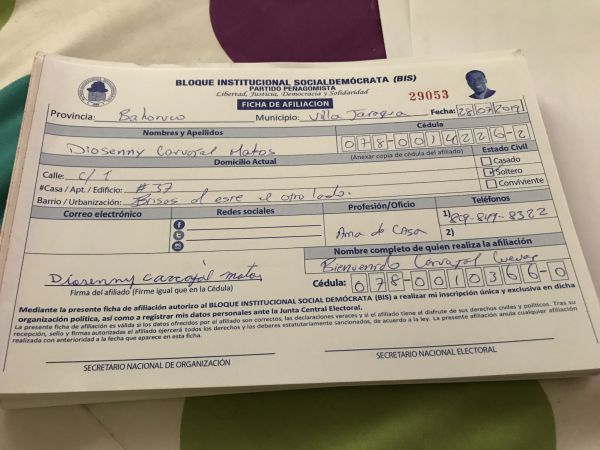 BLOQUE INSTITUCIONAL SOCIALDEMÓCRATA (BIS)
PARTIDO PEÑAGOMISTA
Libertad, Justicia, Democracia y Solidaridad
29053
FICHA DE AFILIACION
Provincia: Bahoruco Municipio: Villa Jaragua Fecha: 28/07/2019
Nombres y Apellidos Cédula
Diosenny Carvajal Matos 078-0014226-2
(Anexar copia de cédula del afiliado)
Domicilio Actual Estado Civil
Calle: c/1 Casado
#Casa / Apt. / Edificio: #37 Soltero
Barrio / Urbanización: Brisas del este el otro lado. Conviviente
Correo electrónico Redes sociales Profesión/Oficio Teléfonos
Ama de casa 1) 809-847-8322
2)
Nombre completo de quien realiza la afiliación
Diosenny carvajal matos Bienvenido Carvajal
Firma del afiliado (Firme igual que en la Cédula) Cédula: 078-0010366-0
Mediante la presente ficha de afiliación autorizo al BLOQUE INSTITUCIONAL SOCIAL DEMÓCRATA (BIS) a realizar mi inscripción única y exclusiva en dicha
organización política, así como a registrar mis datos personales ante la Junta Central Electoral.
La presente ficha de afiliación es válida si los datos ofrecidos por el afiliado son correctos, las declaraciones veraces y si el afiliado tiene el disfrute de sus derechos civiles y políticos. Tras su
recepción, sello y firmas autorizadas el afiliado ejercerá todos los derechos y los deberes estatutariamente sancionados, de acuerdo a la ley. La presente afiliación anula cualquier afiliación
realizada con anterioridad a la fecha que aparece en esta ficha.
SECRETARIO NACIONAL DE ORGANIZACIÓN SECRETARIO NACIONAL ELECTORAL